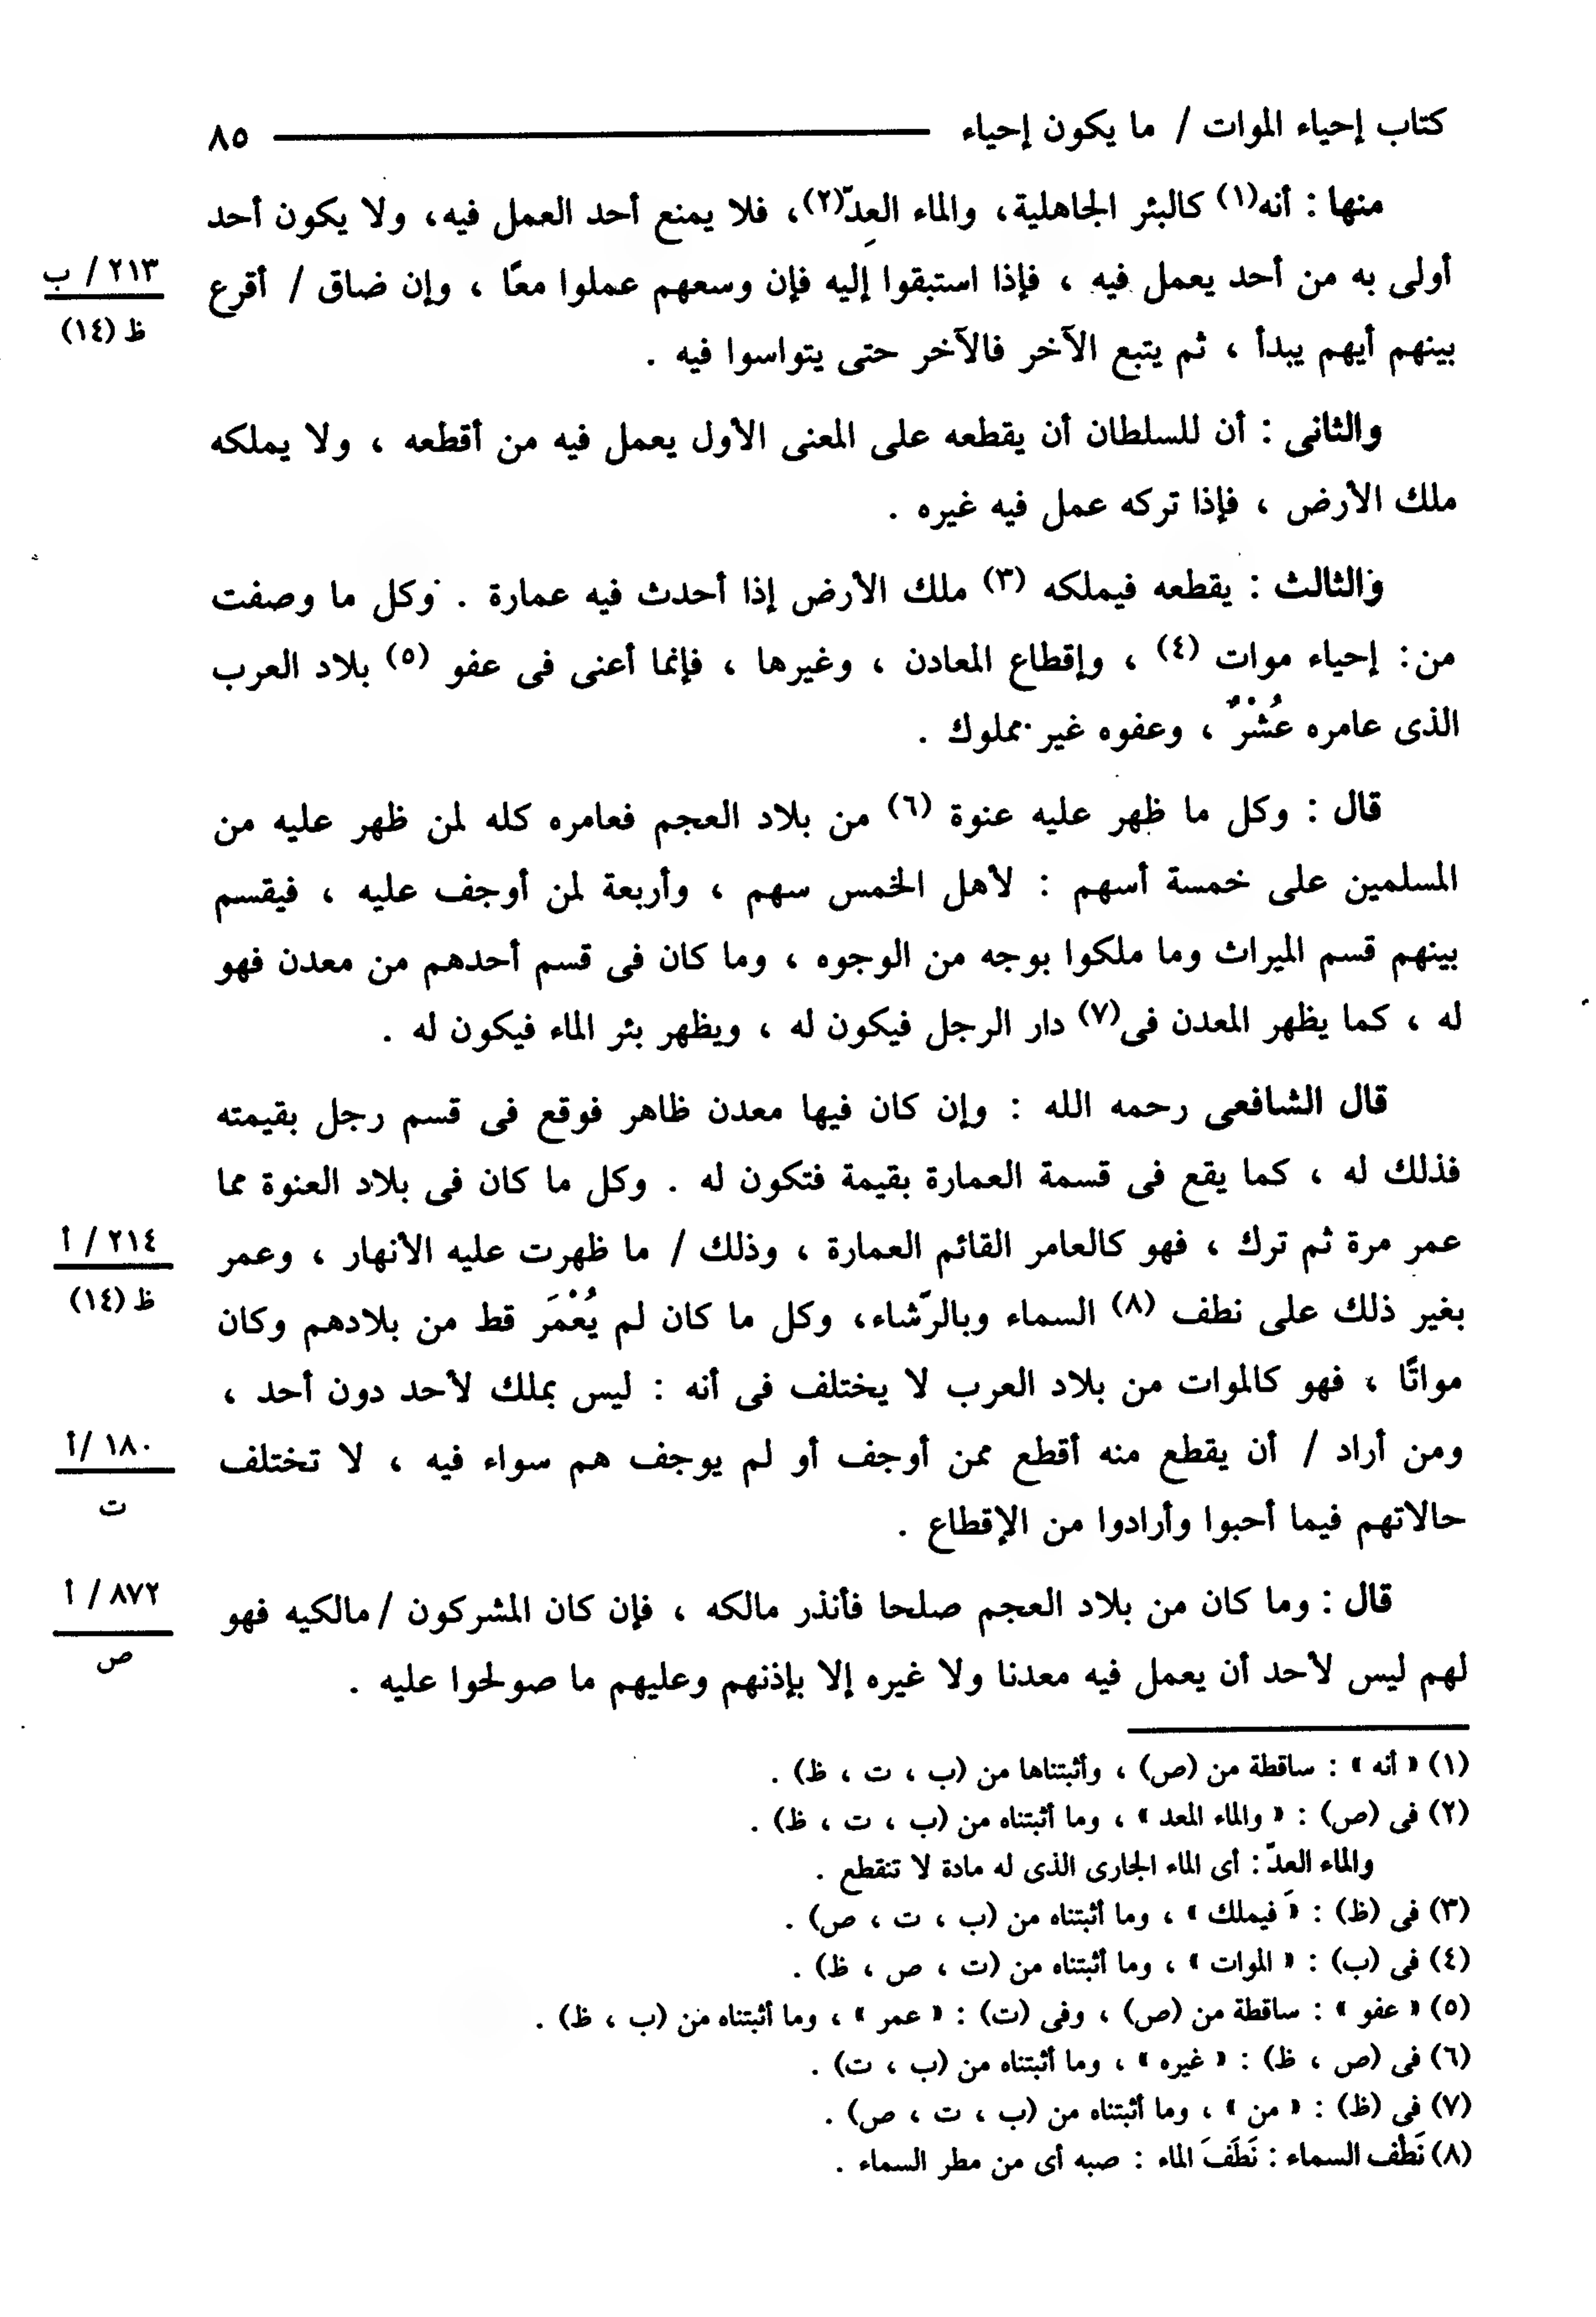 كتاب إحياء الموات / ما يكون إحياء ــــــــــ ٨٥
منها : أنه(١) كالبئر الجاهلية، والماء العِدّ(٢)، فلا يمنع أحد العمل فيه، ولا يكون أحد
أولى به من أحد يعمل فيه ، فإذا استبقوا إليه فإن وسعهم عملوا معًا ، وإن ضاق / أقرع
٢١٣ / ب
ظ (١٤)
بينهم أيهم يبدأ ، ثم يتبع الآخر فالآخر حتى يتواسوا فيه .
والثانى : أن للسلطان أن يقطعه على المعنى الأول يعمل فيه من أقطعه ، ولا يملكه
ملك الأرض ، فإذا تركه عمل فيه غيره .
والثالث : يقطعه فيملكه (٣) ملك الأرض إذا أحدث فيه عمارة . وكل ما وصفت
من: إحياء موات (٤) ، وإقطاع المعادن ، وغيرها ، فإنما أعنى فى عفو (٥) بلاد العرب
الذى عامره عُشْرٌ ، وعفوه غير مملوك .
قال : وكل ما ظهر عليه عنوة (٦) من بلاد العجم فعامره كله لمن ظهر عليه من
المسلمين على خمسة أسهم : لأهل الخمس سهم ، وأربعة لمن أوجف عليه ، فيقسم
بينهم قسم الميراث وما ملكوا بوجه من الوجوه ، وما كان فى قسم أحدهم من معدن فهو
له ، كما يظهر المعدن فى(٧) دار الرجل فيكون له ، ويظهر بئر الماء فيكون له .
قال الشافعى رحمه الله : وإن كان فيها معدن ظاهر فوقع فى قسم رجل بقيمته
فذلك له ، كما يقع فى قسمة العمارة بقيمة فتكون له . وكل ما كان فى بلاد العنوة مما
عمر مرة ثم ترك ، فهو كالعامر القائم العمارة ، وذلك / ما ظهرت عليه الأنهار ، وعمر
٢١٤ / أ
ظ (١٤)
بغير ذلك على نطف (٨) السماء وبالرّشاء، وكل ما كان لم يُعْمَر قط من بلادهم وكان
مواتًا ، فهو كالموات من بلاد العرب لا يختلف فى أنه : ليس بملك لأحد دون أحد ،
ومن أراد / أن يقطع منه أقطع ممن أوجف أو لم يوجف هم سواء فيه ، لا تختلف
١٨٠ /أ
ت
حالاتهم فيما أحبوا وأرادوا من الإقطاع .
قال : وما كان من بلاد العجم صلحا فأنذر مالكه ، فإن كان المشركون /مالكيه فهو
٨٧٢ / أ
ص
لهم ليس لأحد أن يعمل فيه معدنا ولا غيره إلا بإذنهم وعليهم ما صولحوا عليه .
(١) « أنه » : ساقطة من (ص) ، وأثبتناها من (ب ، ت ، ظ) .
(٢) فى (ص) : « والماء المعد » ، وما أثبتناه من (ب ، ت ، ظ) .
والماء العدّ : أى الماء الجارى الذى له مادة لا تنقطع .
(٣) فى (ظ) : « فيملك » ، وما أثبتناه من (ب ، ت ، ص) .
(٤) فى (ب) : « الموات » ، وما أثبتناه من (ت ، ص ، ظ) .
(٥) « عفو » : ساقطة من (ص) ، وفى (ت) : « عمر » ، وما أثبتناه من (ب ، ظ) .
(٦) فى (ص ، ظ) : « غيره » ، وما أثبتناه من (ب ، ت) .
(٧) فى (ظ) : « من » ، وما أثبتناه من (ب ، ت ، ص) .
(٨) نَطْف السماء : نَطَفَ الماء : صبه أى من مطر السماء .